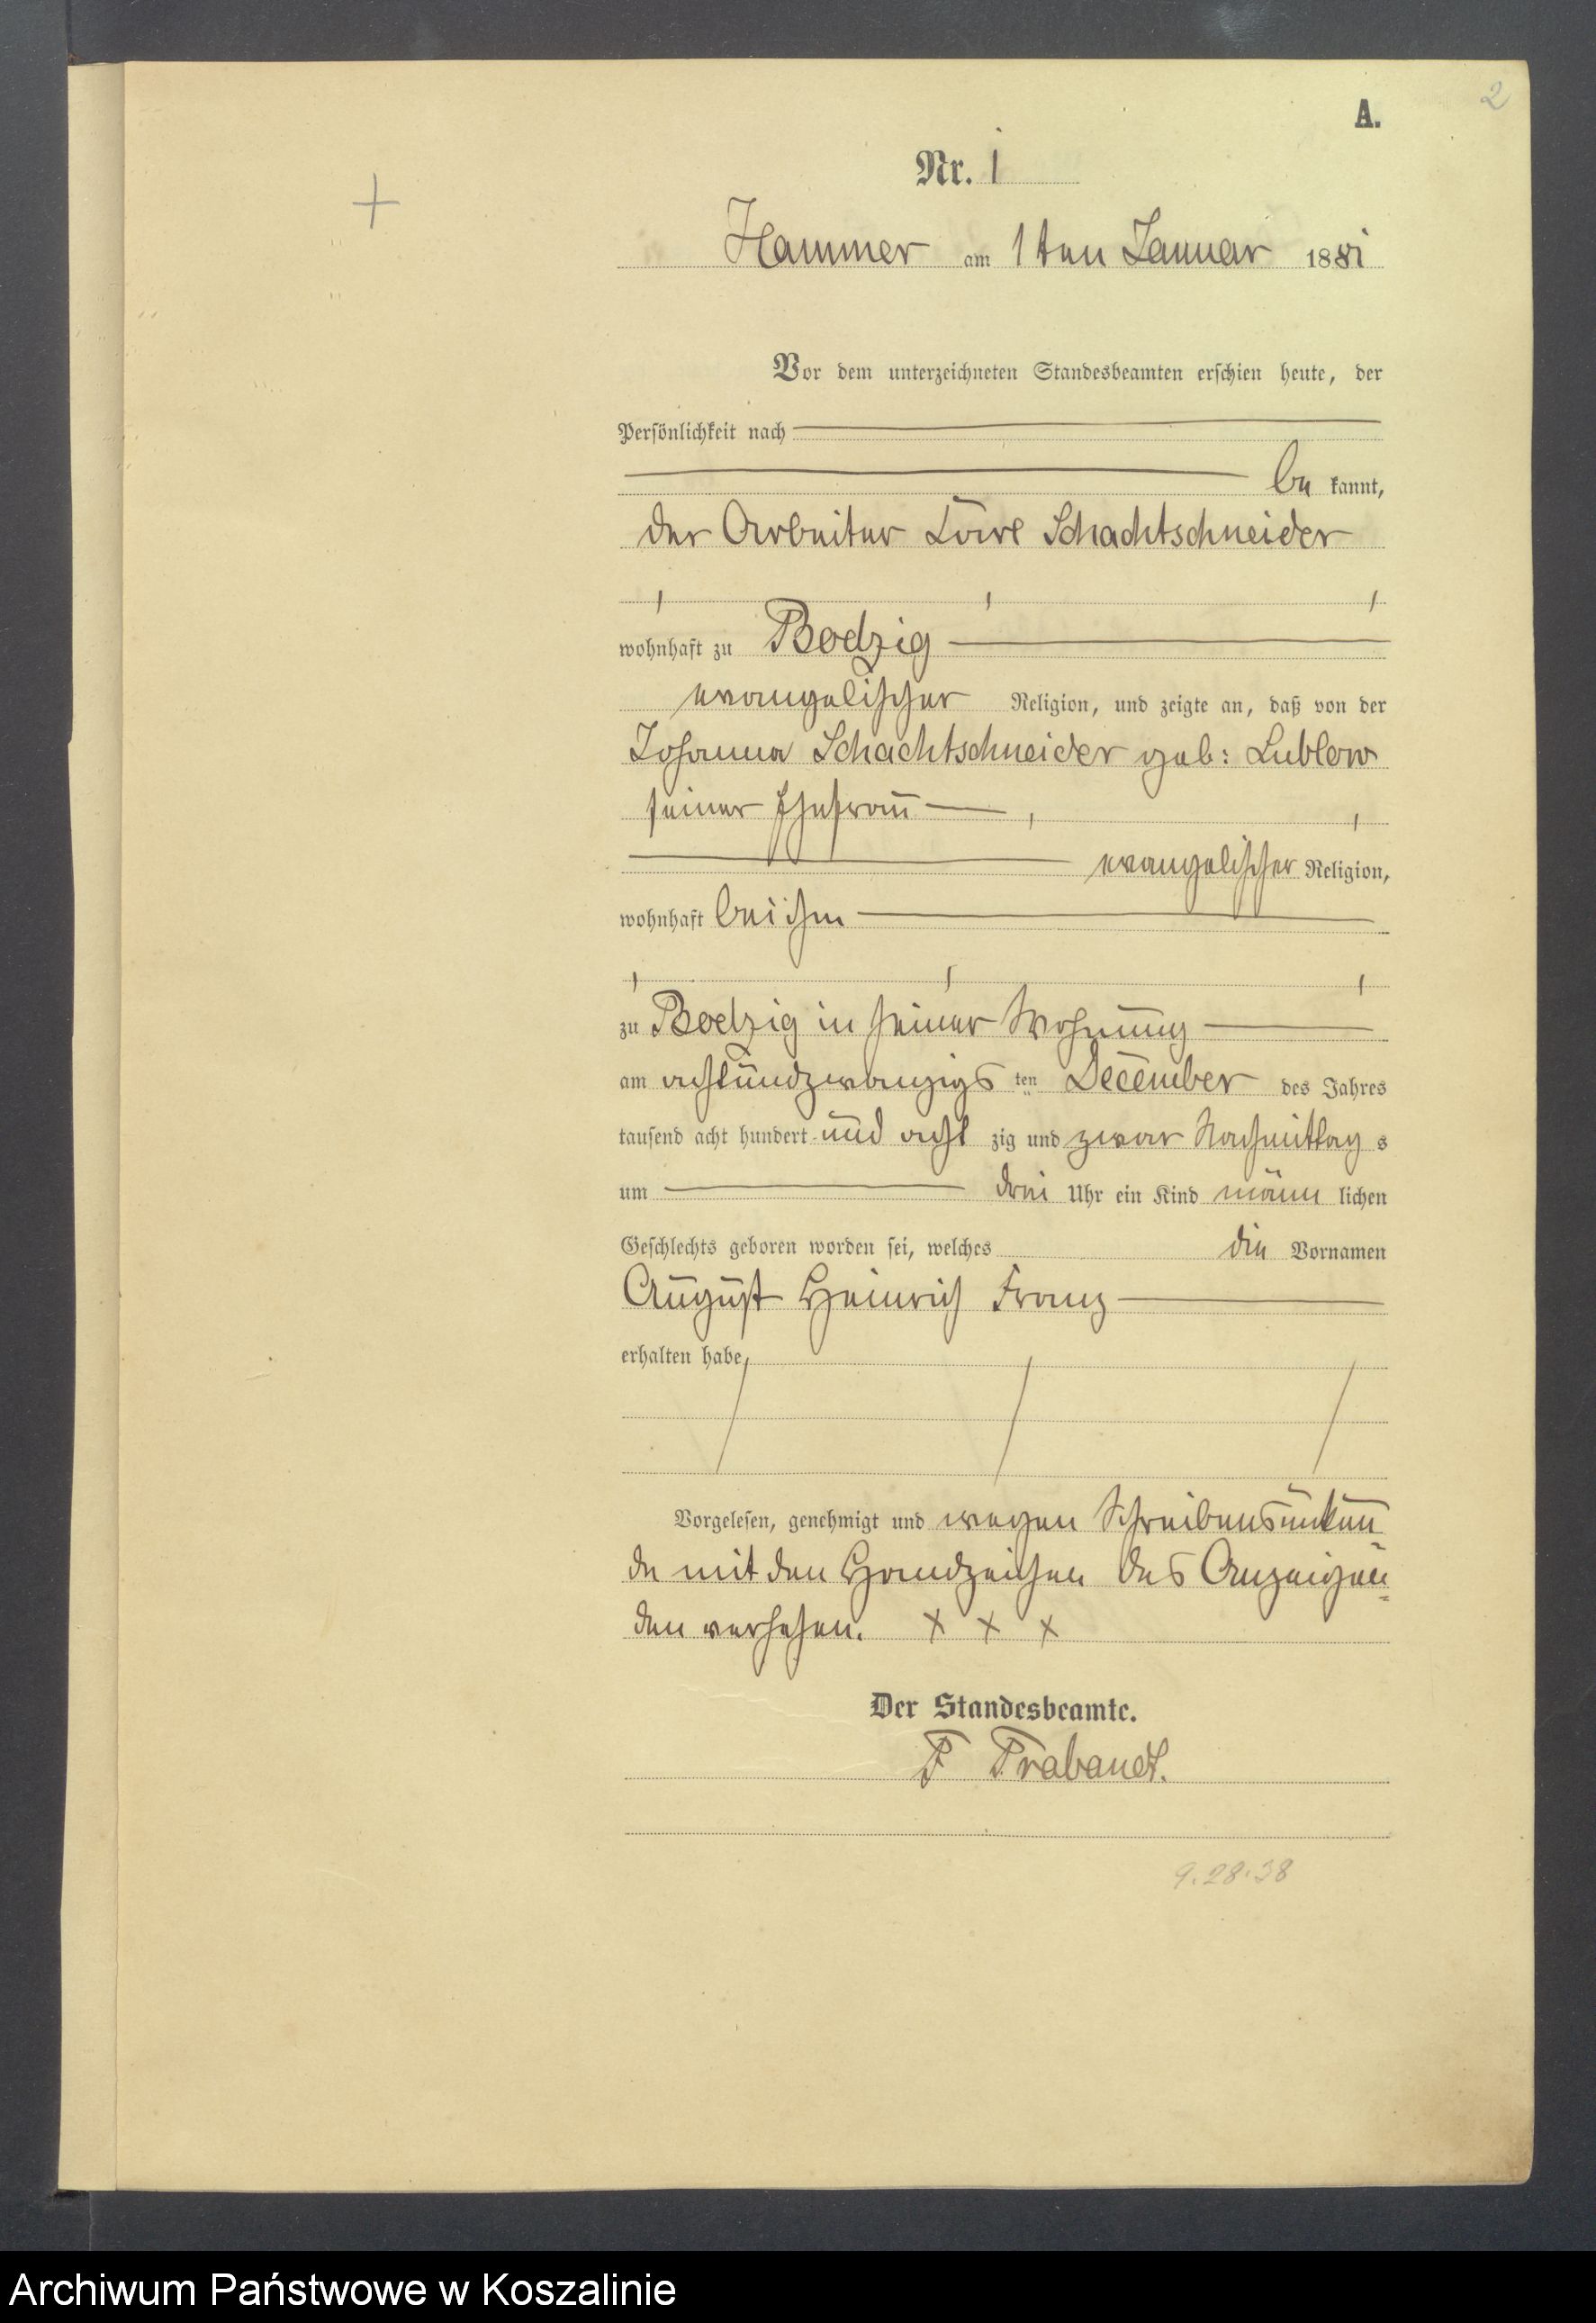 2
A.
Nr. 1
Hammer am 1ten Januar 1881
Vor dem unterzeichneten Standesbeamten erschien heute, der
Persönlichkeit nach
be kannt,
der Arbeiter Karl Schachtschneider
wohnhaft zu Bodzig
evangelischer Religion, und zeigte an, daß von der
Johanna Schachtschneider geb: Lublow
seiner Ehefrau
evangelischer Religion,
wohnhaft bei ihm
zu Bodzig in seiner Wohnung
am achtundzwanzigs ten December des Jahres
tausend acht hundert und acht zig und zwar Nachmittag s
um drei Uhr ein Kind männ lichen
Geschlechts geboren worden sei, welches die Vornamen
August Heinrich Franz
erhalten habe
Vorgelesen, genehmigt und wegen Schreibensunkun
de mit den Handzeichen des Anzeigen
den versehen. x x x
Der Standesbeamte.
F Trabandt.
9.28.38
Archiwum Państwowe w Koszalinie